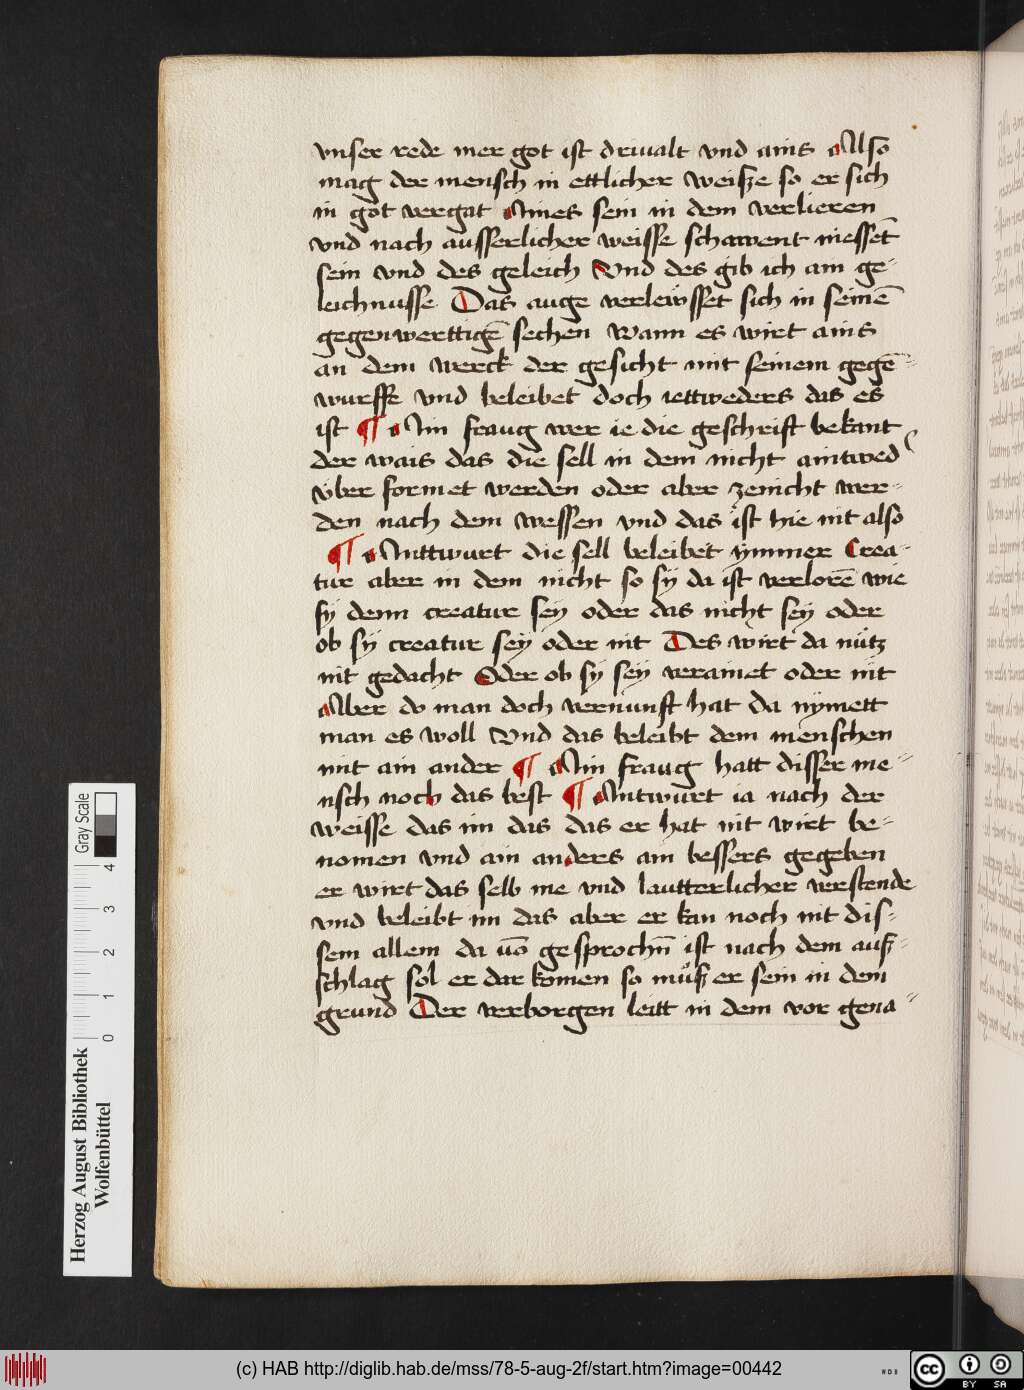 vnser rede mer got ist driualt vnd ains Also
mag der mensch in ettlicher weisze so er sich
in got vergat Aines sein in dem verlieren
vnd nach ausserlicher weisse schawent niessēt
sein vnd des geleich Vnd des gib ich am ge-
leichnusse Das auge verlewsset sich in seinē
gegenwerttigē sechen Wann es wirt ains
an dem werck der gesicht mit seinem gegē-
wurffe vnd beleibet doch iettweders das es
ist ¶ Ain fraug wer ie die geschrift bekant
der wais das die sell in dem nicht aintwed
vber formet werden oder aber zenicht wer-
den nach dem wessen vnd das ist hie nit also
¶ Anttwurt die sell beleibet ymmer Crea-
tur aber in dem nicht so sÿ da ist verlorē wie
sÿ denn creatur seÿ oder das nicht seÿ oder
ob sÿ creatur seÿ oder nit Des wirt da nütz
nit gedacht Oder ob sÿ seÿ verainet oder nit
Aber do man doch vernunft hat da nÿmett
man es woll Vnd das beleibt dem menschen
mit ain ander ¶ Ain fraug hatt disser me-
nsch noch das best ¶ Antwurt ia nach der
weisse das im das das er hat nit wirt be-
nomen vnd ain anders ain bessers gegeben
er wirt das selb me vnd lautterlicher verstende
vnd beleibt im das aber er kan noch nit dis-
sem allem da uō gesprochn̄ ist nach dem auß-
schlag sol er dar komen so müß er sein in dem
grund Der verborgen leitt in dem vor gena-
Gray Scale
4
3
2
1
0
Herzog August Bibliothek
Wolfenbüttel
(c) HAB http://diglib.hab.de/mss/78-5-aug-2f/start.htm?image=00442
WDB
cc
BY SA